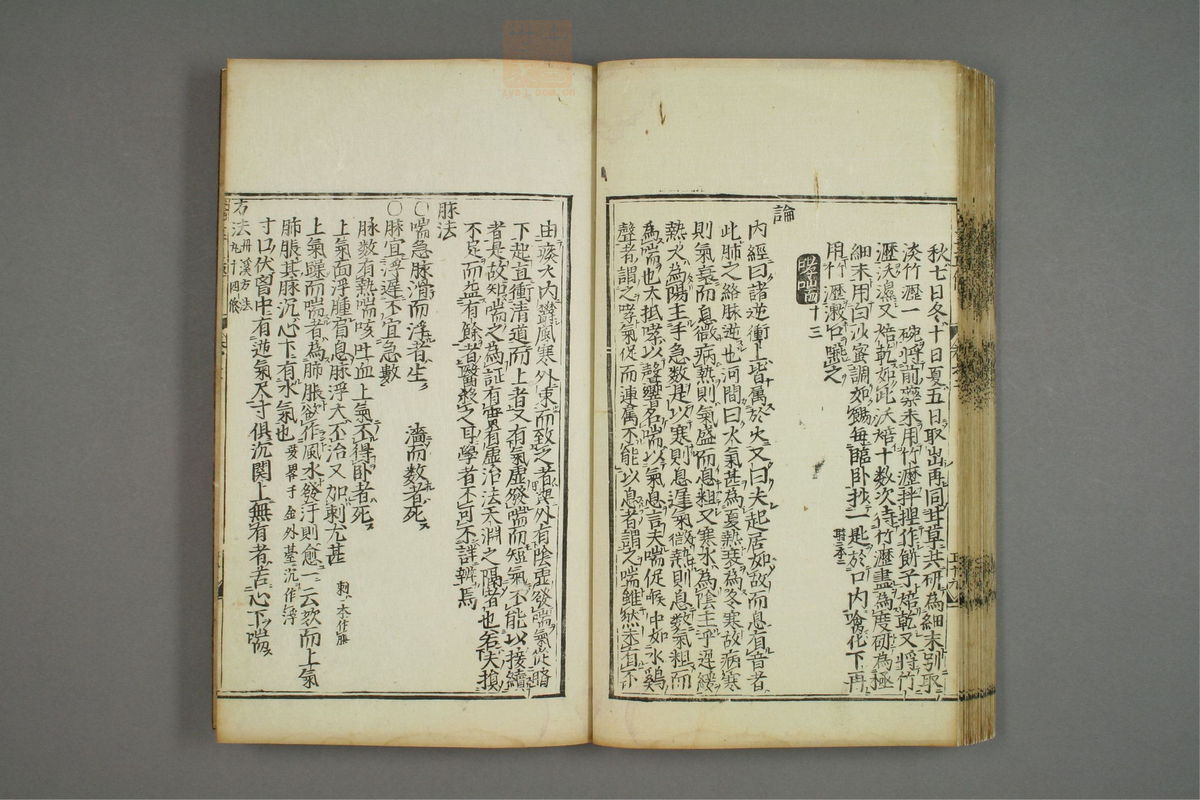 秋七日冬十日夏五日取出再同甘草共研為細末別取
淡竹瀝一碗將前藥末用竹瀝拌捏作餅子焙乾又將竹
瀝沃濕又焙乾如此沃焙十數次待竹瀝盡為度研為極
細末用白沙蜜調如餳每臨臥抄一匙於口內噙化下再
用竹瀝漱口嚥之
哮喘 十三
論
內經曰諸逆衝上皆属於火又曰夫起居如故而息有音者
此肺之絡脉逆也河間曰火氣甚為夏熱衰為冬寒故病寒
則氣衰而息微病熱則氣盛而息粗又寒水為陰主乎遲緩
熱火為陽主手急數是以寒則息遲氣微熱則息數氣粗而
為喘也大抵哮以聲響名喘以氣息言夫喘促喉中如水雞
聲者謂之哮氣促而連属不能以息者謂之喘雖然未有不
由痰火內鬱風寒外束而致之者與外有陰虛發喘氣從臍
下起直衝清道而上者又有氣虛發喘而短氣不能以接續
者是故知喘之為証有實有虛治法天淵之隔者也若夫損
不足而益有餘者醫殺之耳學者不可不詳辨焉
脉法
○喘急脉滑而浮者生 濇而数者死
○脉宜浮遲不宜急數
脉數有熱喘咳吐血上氣不得臥者死
上氣面浮腫肩息脉浮大不治又加剌尤甚
上氣躁而喘者為肺脹欲作風水發汗則愈一云欬而上氣
肺脹其脉沉心下有水氣也 外䑓沉作浮
寸口伏胷中有逆氣尺寸俱沉関上無有者苦心下喘
方法 丹溪方法